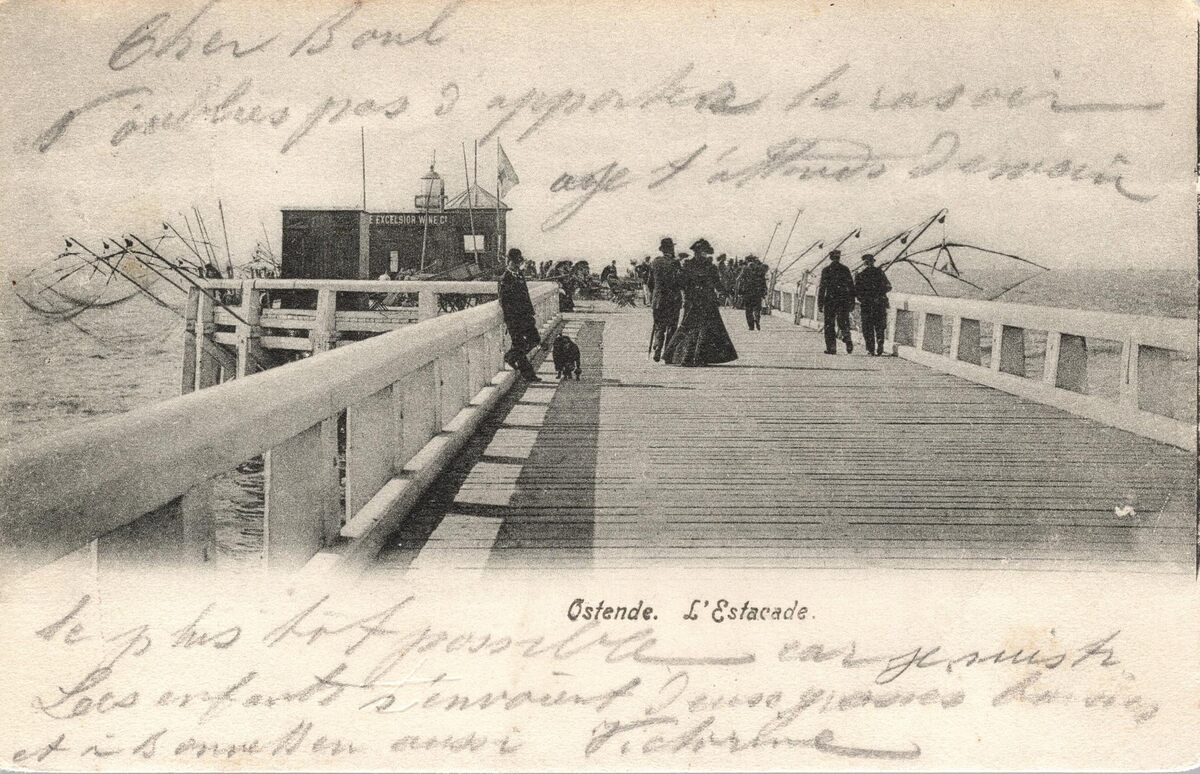 Cher Boul
N'oublies pas d'apporter le rasoir
je t'attends demain
E EXCELSIOR WINE Co
Ostende. L'Estacade.
le plus tôt possible car je suis
Les enfants s'envoient deux grosses
et à Bonnet en aussi Victorine